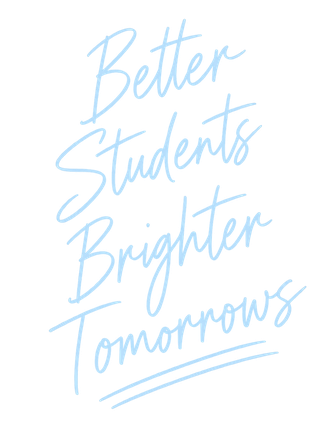 Better
Students
Brighter
Tomorrows